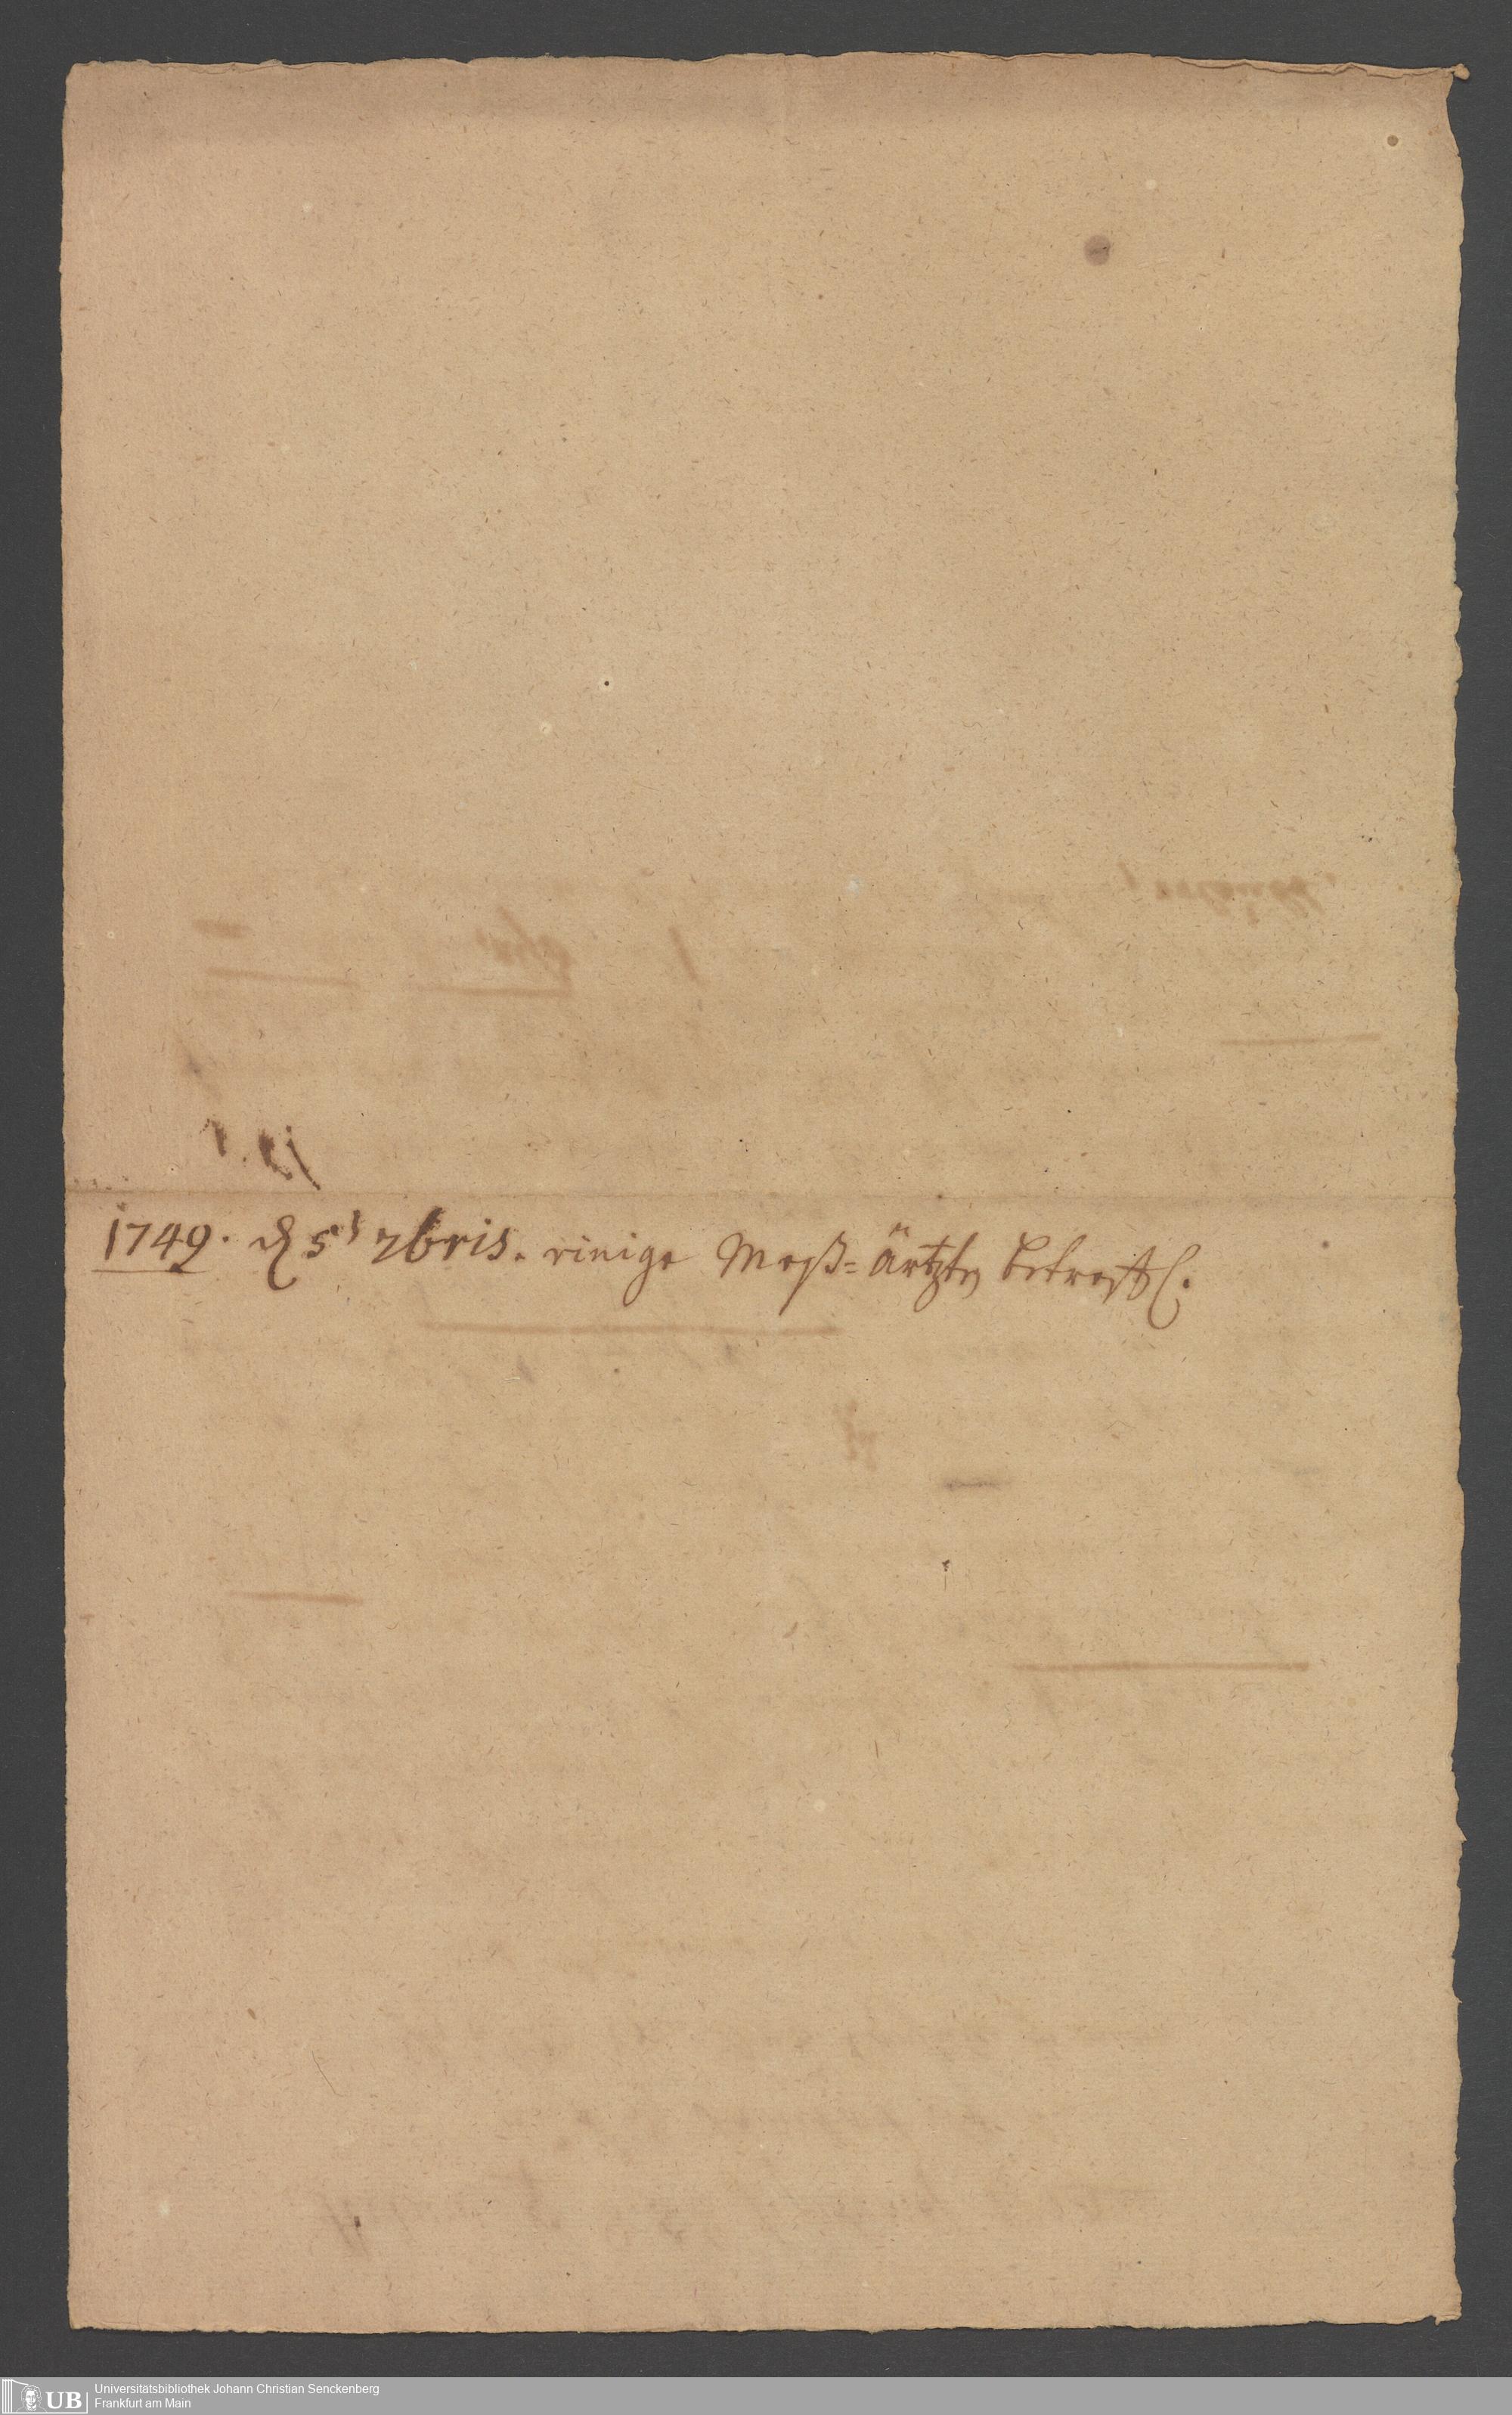 1749. d. 5t 7bris. einige Meß=Ärtzte betreffl.
UB Universitätsbibliothek Johann Christian Senckenberg
Frankfurt am Main